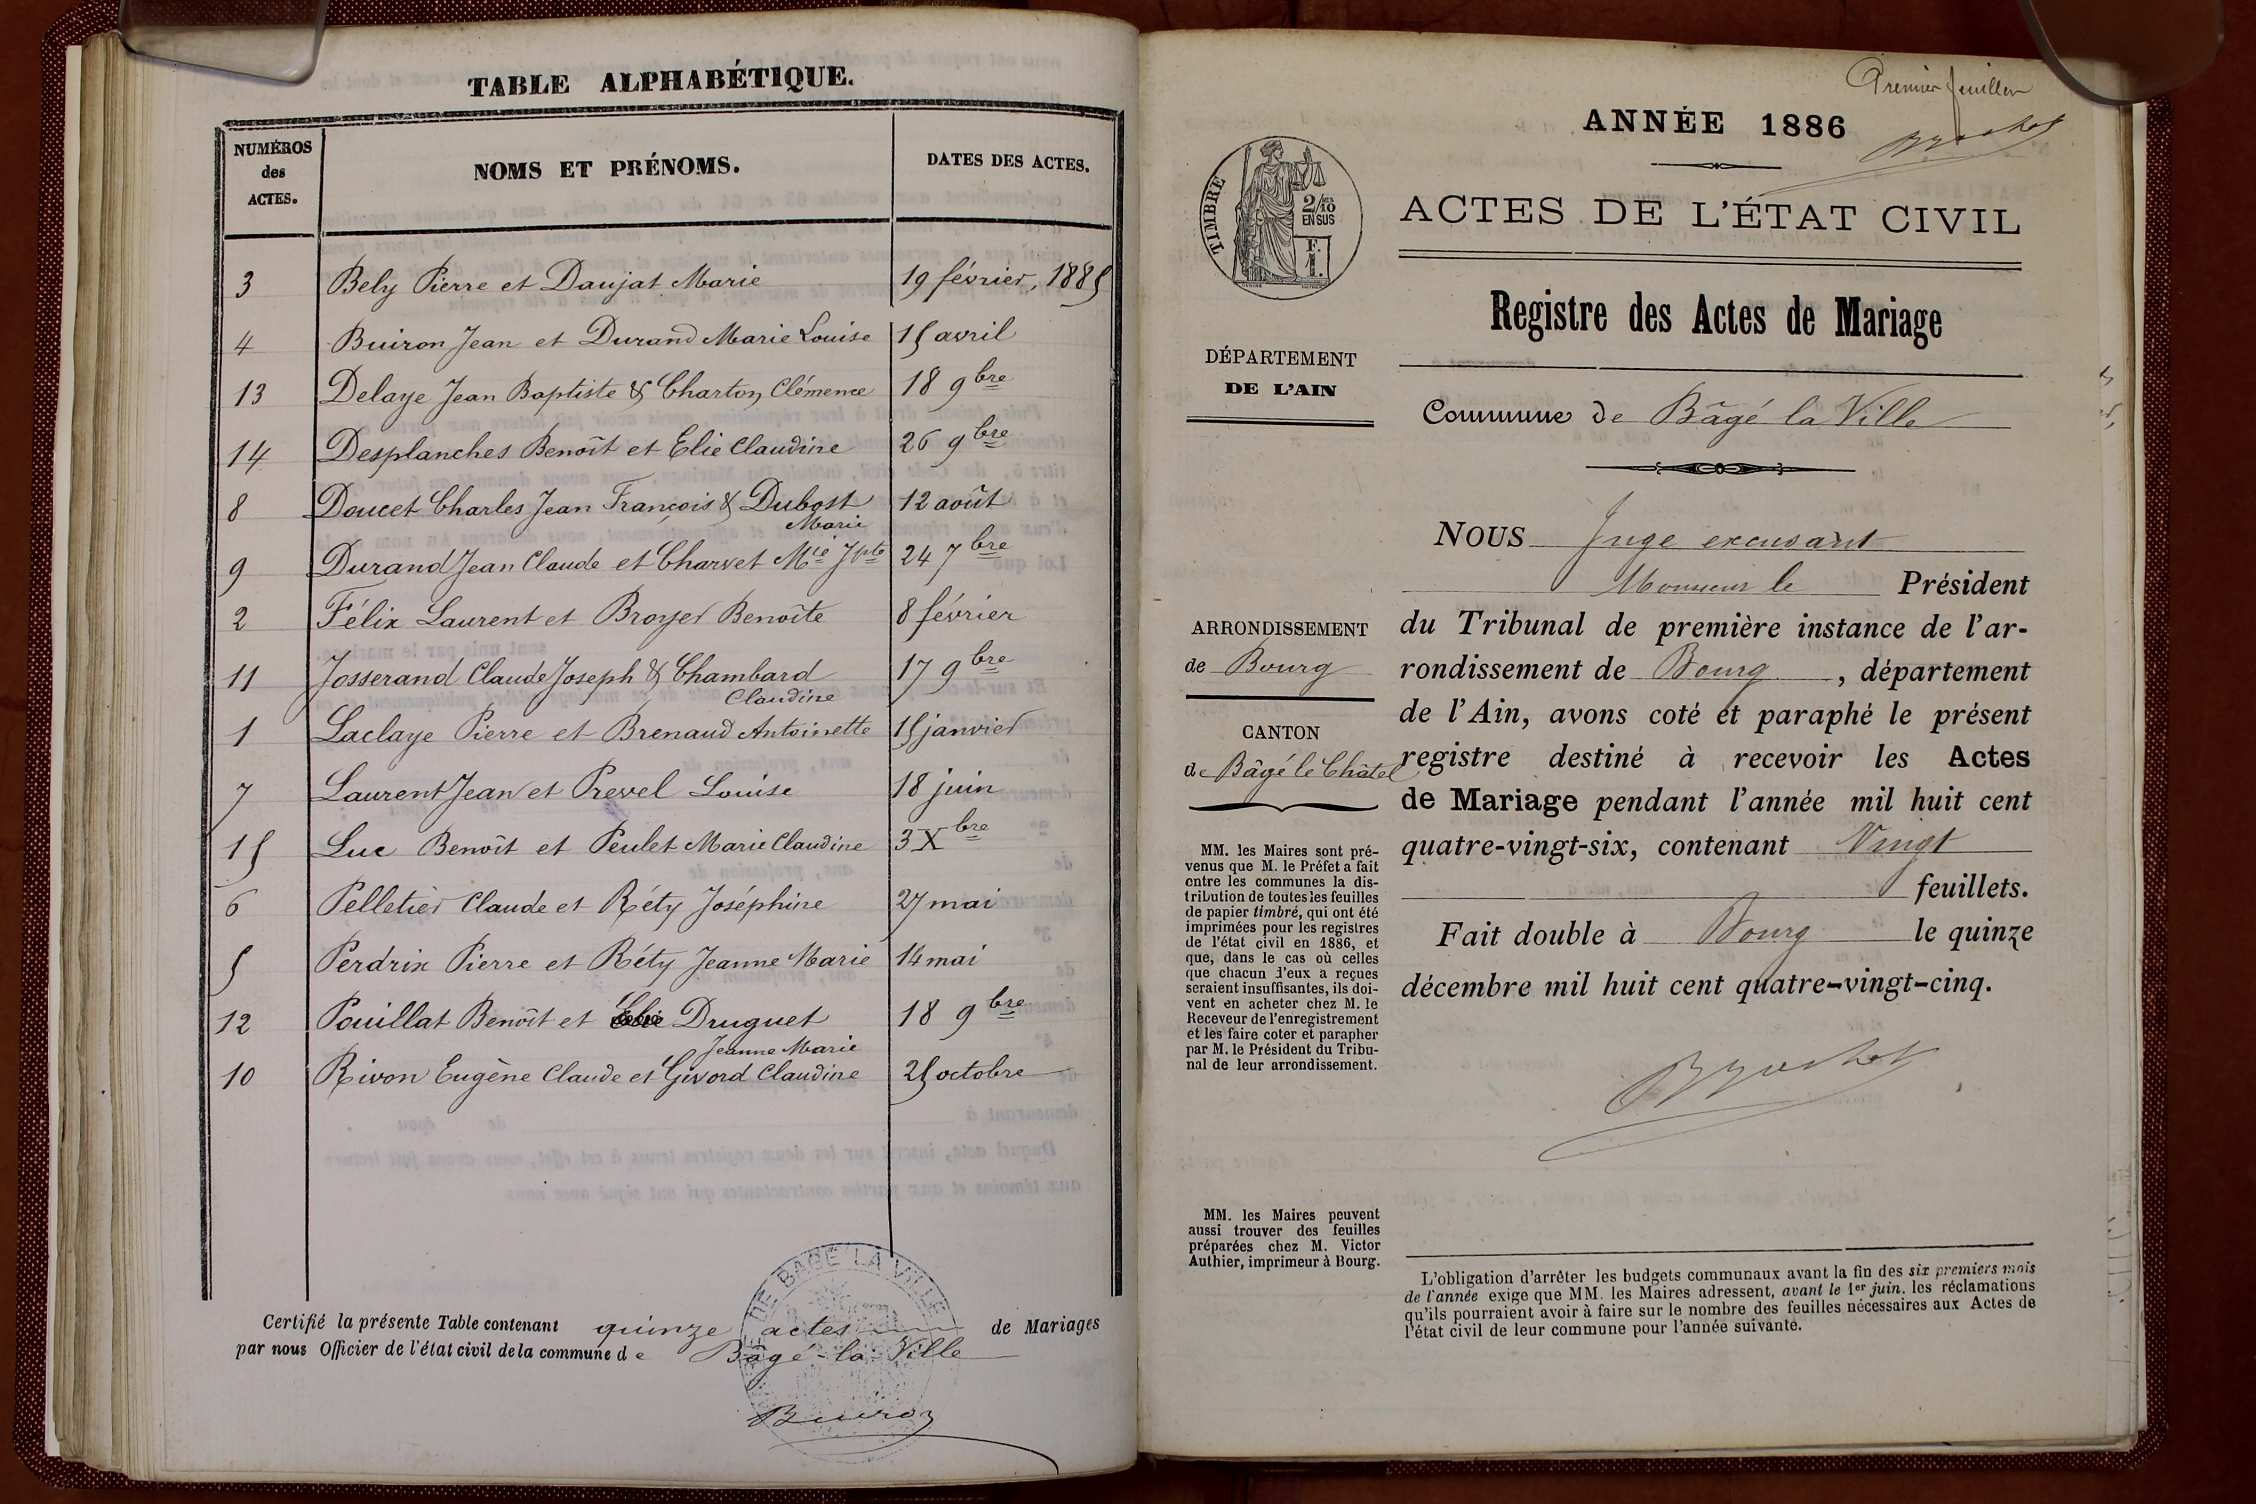 TABLE ALPHABÉTIQUE.
NUMÉROS des ACTES.
NOMS ET PRÉNOMS.
DATES DES ACTES.
3 Bely Pierre et Daujat Marie 19 février, 1885
4 Buiron Jean et Durand Marie Louise 15 avril
13 Delaye Jean Baptiste & Charton Clémence 18 9bre
14 Desplanches Benoît et Elie Claudine 26 9bre
8 Doucet Charles Jean François & Dubost 12 août
Marie
9 Durand Jean Claude et Charvet Mie Jpte 24 7bre
2 Félix Laurent et Broyer Benoîte 8 février
11 Josserand Claude Joseph & Chambard 17 9bre
Claudine
1 Laclaye Pierre et Brenaud Antoinette 15 janvier
7 Laurent Jean et Prevel Louise 18 juin
15 Luc Benoît et Peulet Marie Claudine 3 Xbre
6 Pelletier Claude et Réty Joséphine 27 mai
5 Perdrix Pierre et Réty Jeanne Marie 14 mai
12 Pouillat Benoît et Druguet 18 9bre
Jeanne Marie
10 Rivon Eugène Claude et Givord Claudine 25 octobre
Certifié la présente Table contenant quinze actes de Mariages
par nous Officier de l'état civil de la commune de Bâgé-la-Ville
DE BAGÉ LA VILLE
Buiron
Premier feuillet
ANNÉE 1886
Brochet
TIMBRE
2/10 EN SUS
F. 1.
ACTES DE L'ÉTAT CIVIL
Registre des Actes de Mariage
DÉPARTEMENT
DE L'AIN
Commune de Bâgé la Ville
NOUS Juge excusant
Monsieur le Président
du Tribunal de première instance de l'ar-
rondissement de Bourg, département
de l'Ain, avons coté et paraphé le présent
registre destiné à recevoir les Actes
de Mariage pendant l'année mil huit cent
quatre-vingt-six, contenant Vingt
feuillets.
Fait double à Bourg le quinze
décembre mil huit cent quatre-vingt-cinq.
Brochet
ARRONDISSEMENT
de Bourg
CANTON
de Bâgé le Châtel
MM. les Maires sont pré-
venus que M. le Préfet a fait
entre les communes la dis-
tribution de toutes les feuilles
de papier timbré, qui ont été
imprimées pour les registres
de l'état civil en 1886, et
que, dans le cas où celles
que chacun d'eux a reçues
seraient insuffisantes, ils doi-
vent en acheter chez M. le
Receveur de l'enregistrement
et les faire coter et parapher
par M. le Président du Tribu-
nal de leur arrondissement.
MM. les Maires peuvent
aussi trouver des feuilles
préparées chez M. Victor
Authier, imprimeur à Bourg.
L'obligation d'arrêter les budgets communaux avant la fin des six premiers mois
de l'année exige que MM. les Maires adressent, avant le 1er juin, les réclamations
qu'ils pourraient avoir à faire sur le nombre des feuilles nécessaires aux Actes de
l'état civil de leur commune pour l'année suivante.